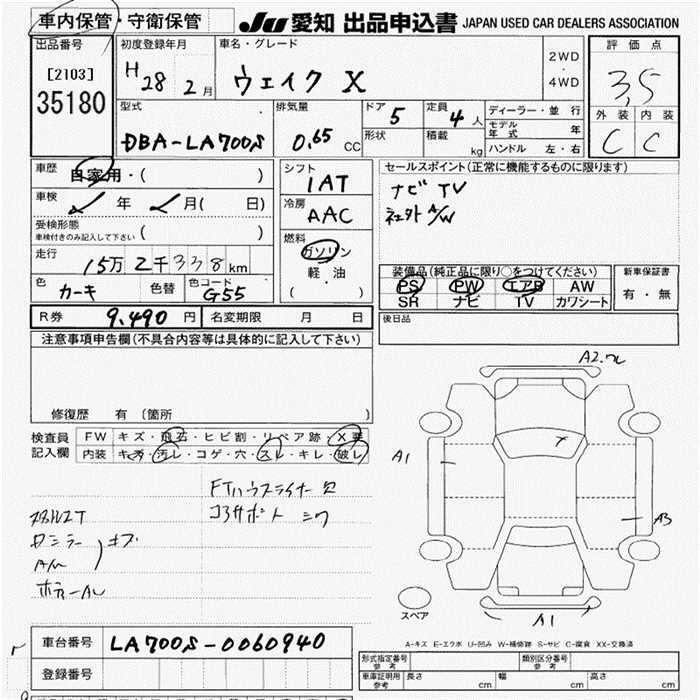 車内保管・守衛保管 JU 愛知 出品申込書 JAPAN USED CAR DEALERS ASSOCIATION
出品番号 [2103] 35180
初度登録年月 H28 2月
車名・グレード ウェイク X
2WD・4WD
評価点 3,5
外装 C 内装 C
型式 DBA-LA700S
排気量 0.65 CC
ドア 5
形状
定員 4人
積載 kg
ディーラー・並行
モデル年式 年
ハンドル 左・右
車歴 自家用・( )
車検 年 月( 日)
受検形態 ( )
車検付きのみ記入して下さい
走行 15万2千338km
色 カーキ 色替 色コード G55
シフト 1AT
冷房 AAC
燃料 ガソリン
軽油
( )
セールスポイント(正常に機能するものに限ります)
ナビ TV
社外A/W
装備品(純正品に限り○をつけてください)
PS PW エアB AW
SR ナビ TV カワシート
新車保証書
有・無
後日品
R券 9.490円 名変期限 月 日
注意事項申告欄(不具合内容等は具体的に記入して下さい)
修復歴 有 〔箇所 〕
検査員記入欄 FW キズ・飛石・ヒビ割・リペア跡・X要
内装 キズ・汚レ・コゲ・穴・スレ・キレ・破レ
FTハウスライナー欠
コアサポート シワ
キズ
ボディーAU
A2.ワレ
A1
A3
A1
スペア
A-キズ E-エクボ U-凹み W-補修跡 S-サビ C-腐食 XX-交換済
車台番号 LA700S-0060940
登録番号
形式指定番号 参考
類別区分番号 参考
車庫証明用 参考 長さ cm 幅 cm 高さ cm